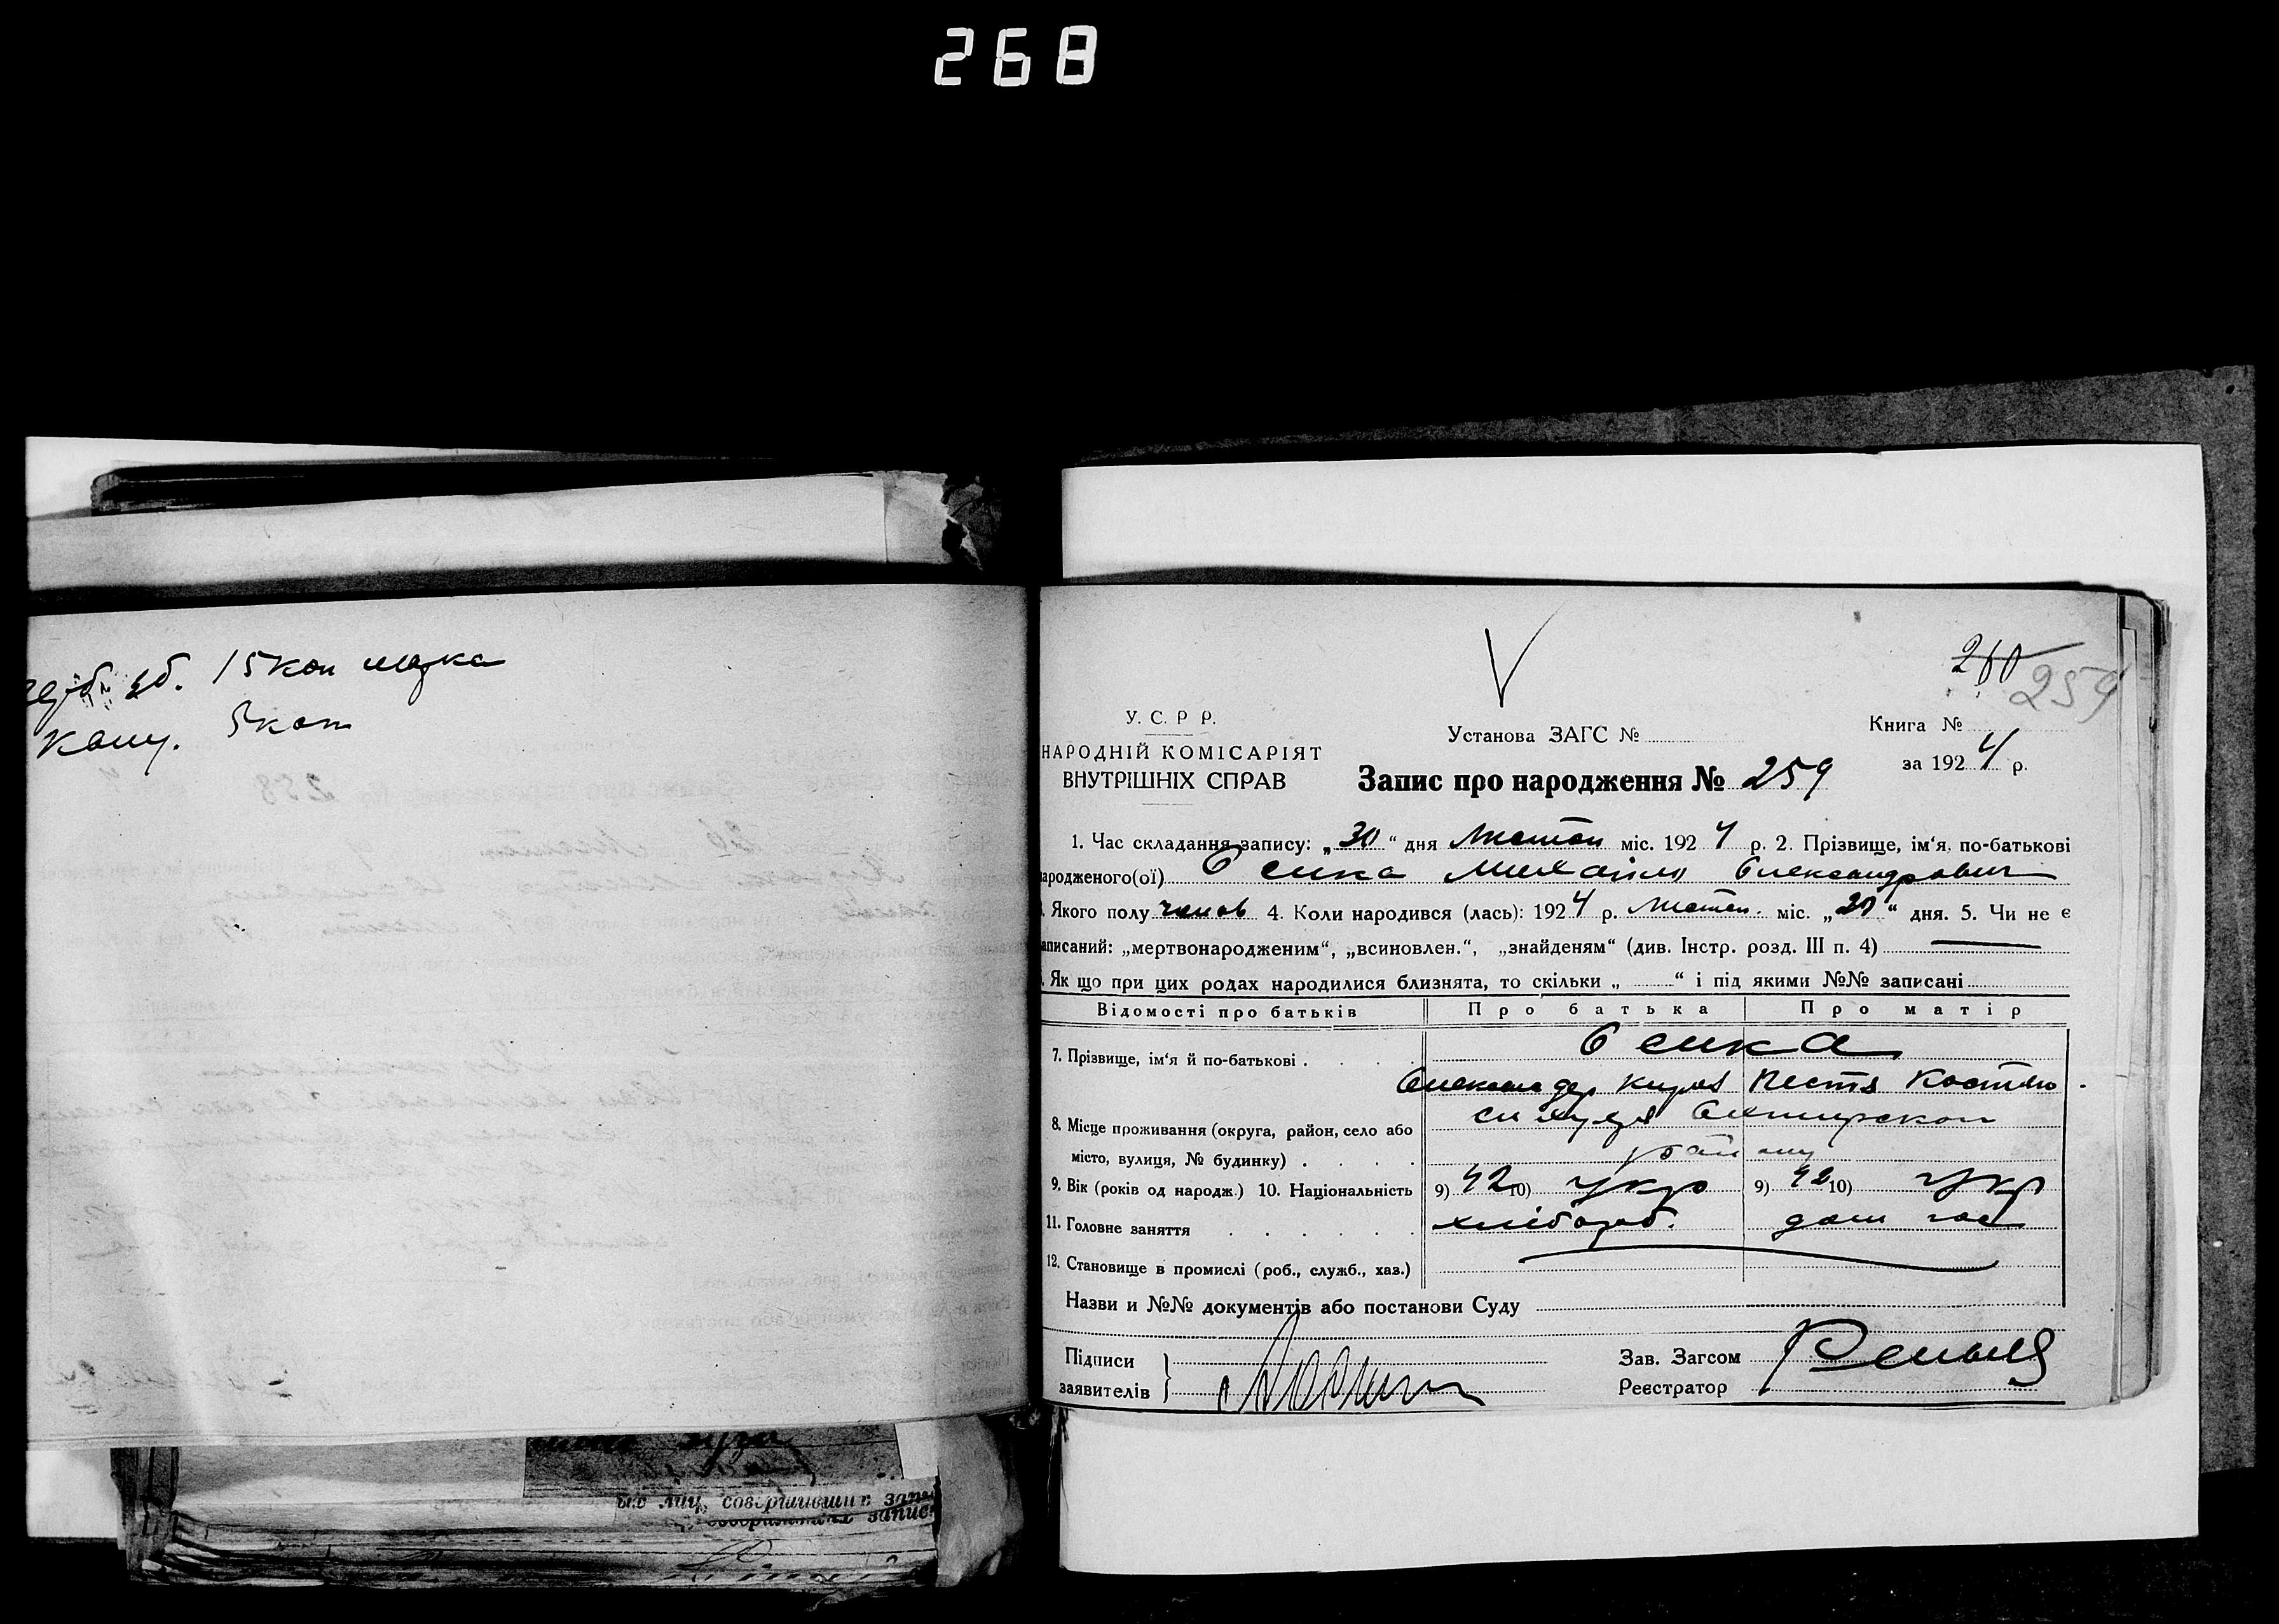 268
зб. 15 коп марка
канц. 5 коп
260
259
У. С. Р Р.
НАРОДНІЙ КОМІСАРІЯТ
ВНУТРІШНІХ СПРАВ
Установа ЗАГС №
Книга №
за 1924 р.
Запис про народження № 259
1. Час складання запису: „30“ дня Листоп міс. 1924 р. 2. Прізвище, ім'я, по-батькові
ародженого(ої) Осика Михайло Олександрович
. Якого полу чолов 4. Коли народився (лась): 1924 р. Листоп. міс. „20“ дня. 5. Чи не є
аписаний: „мертвонародженим“, „всиновлен.“, „знайденям“ (див. Інстр. розд. III п. 4)
. Як що при цих родах народилися близнята, то скільки „ “ і під якими №№ записані
Відомості про батьків Про батька Про матір
7. Прізвище, ім'я й по-батькові . . . . Осика
Олександер Кирил Настя Костян.
8. Місце проживання (округа, район, село або
місто, вулиця, № будинку) . . . .
сл Охтирскои
району
9. Вік (років од народж.) 10. Національність 9) 42 10) Укр 9) 42 10) Укр
11. Головне заняття . . . . . . хлібороб. дом гос
12. Становище в промислі (роб., служб., хаз.)
Назви и №№ документів або постанови Суду
Підписи
заявителів
Зав. Загсом
Реєстратор
лиц, совершивших запи
совершивших запис